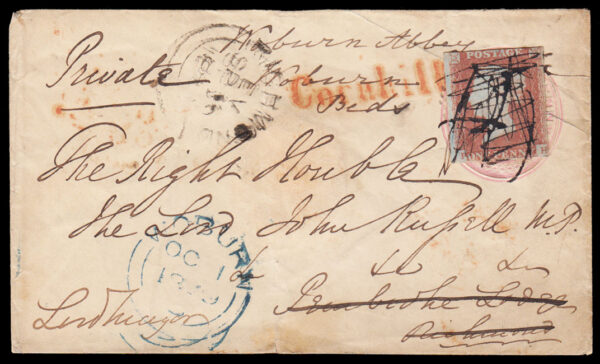 Woburn Abbey
Private Woburn
Beds
Cornhill
POSTAGE
ONE PENNY
The Right Honble
The Lord John Russell M.P.
WOBURN
OC 1
Pembroke Lodge
Richmond
Lord mayor